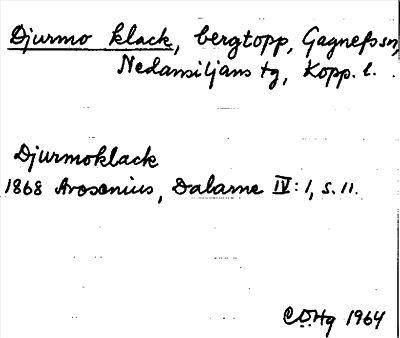 Djurmo klack, bergtopp, Gagnefs sn,
Nedansiljans tg, Kopp. l.
Djurmoklack
1868 Arosenius, Dalarne IV: 1, s. 11.
CDHg 1964